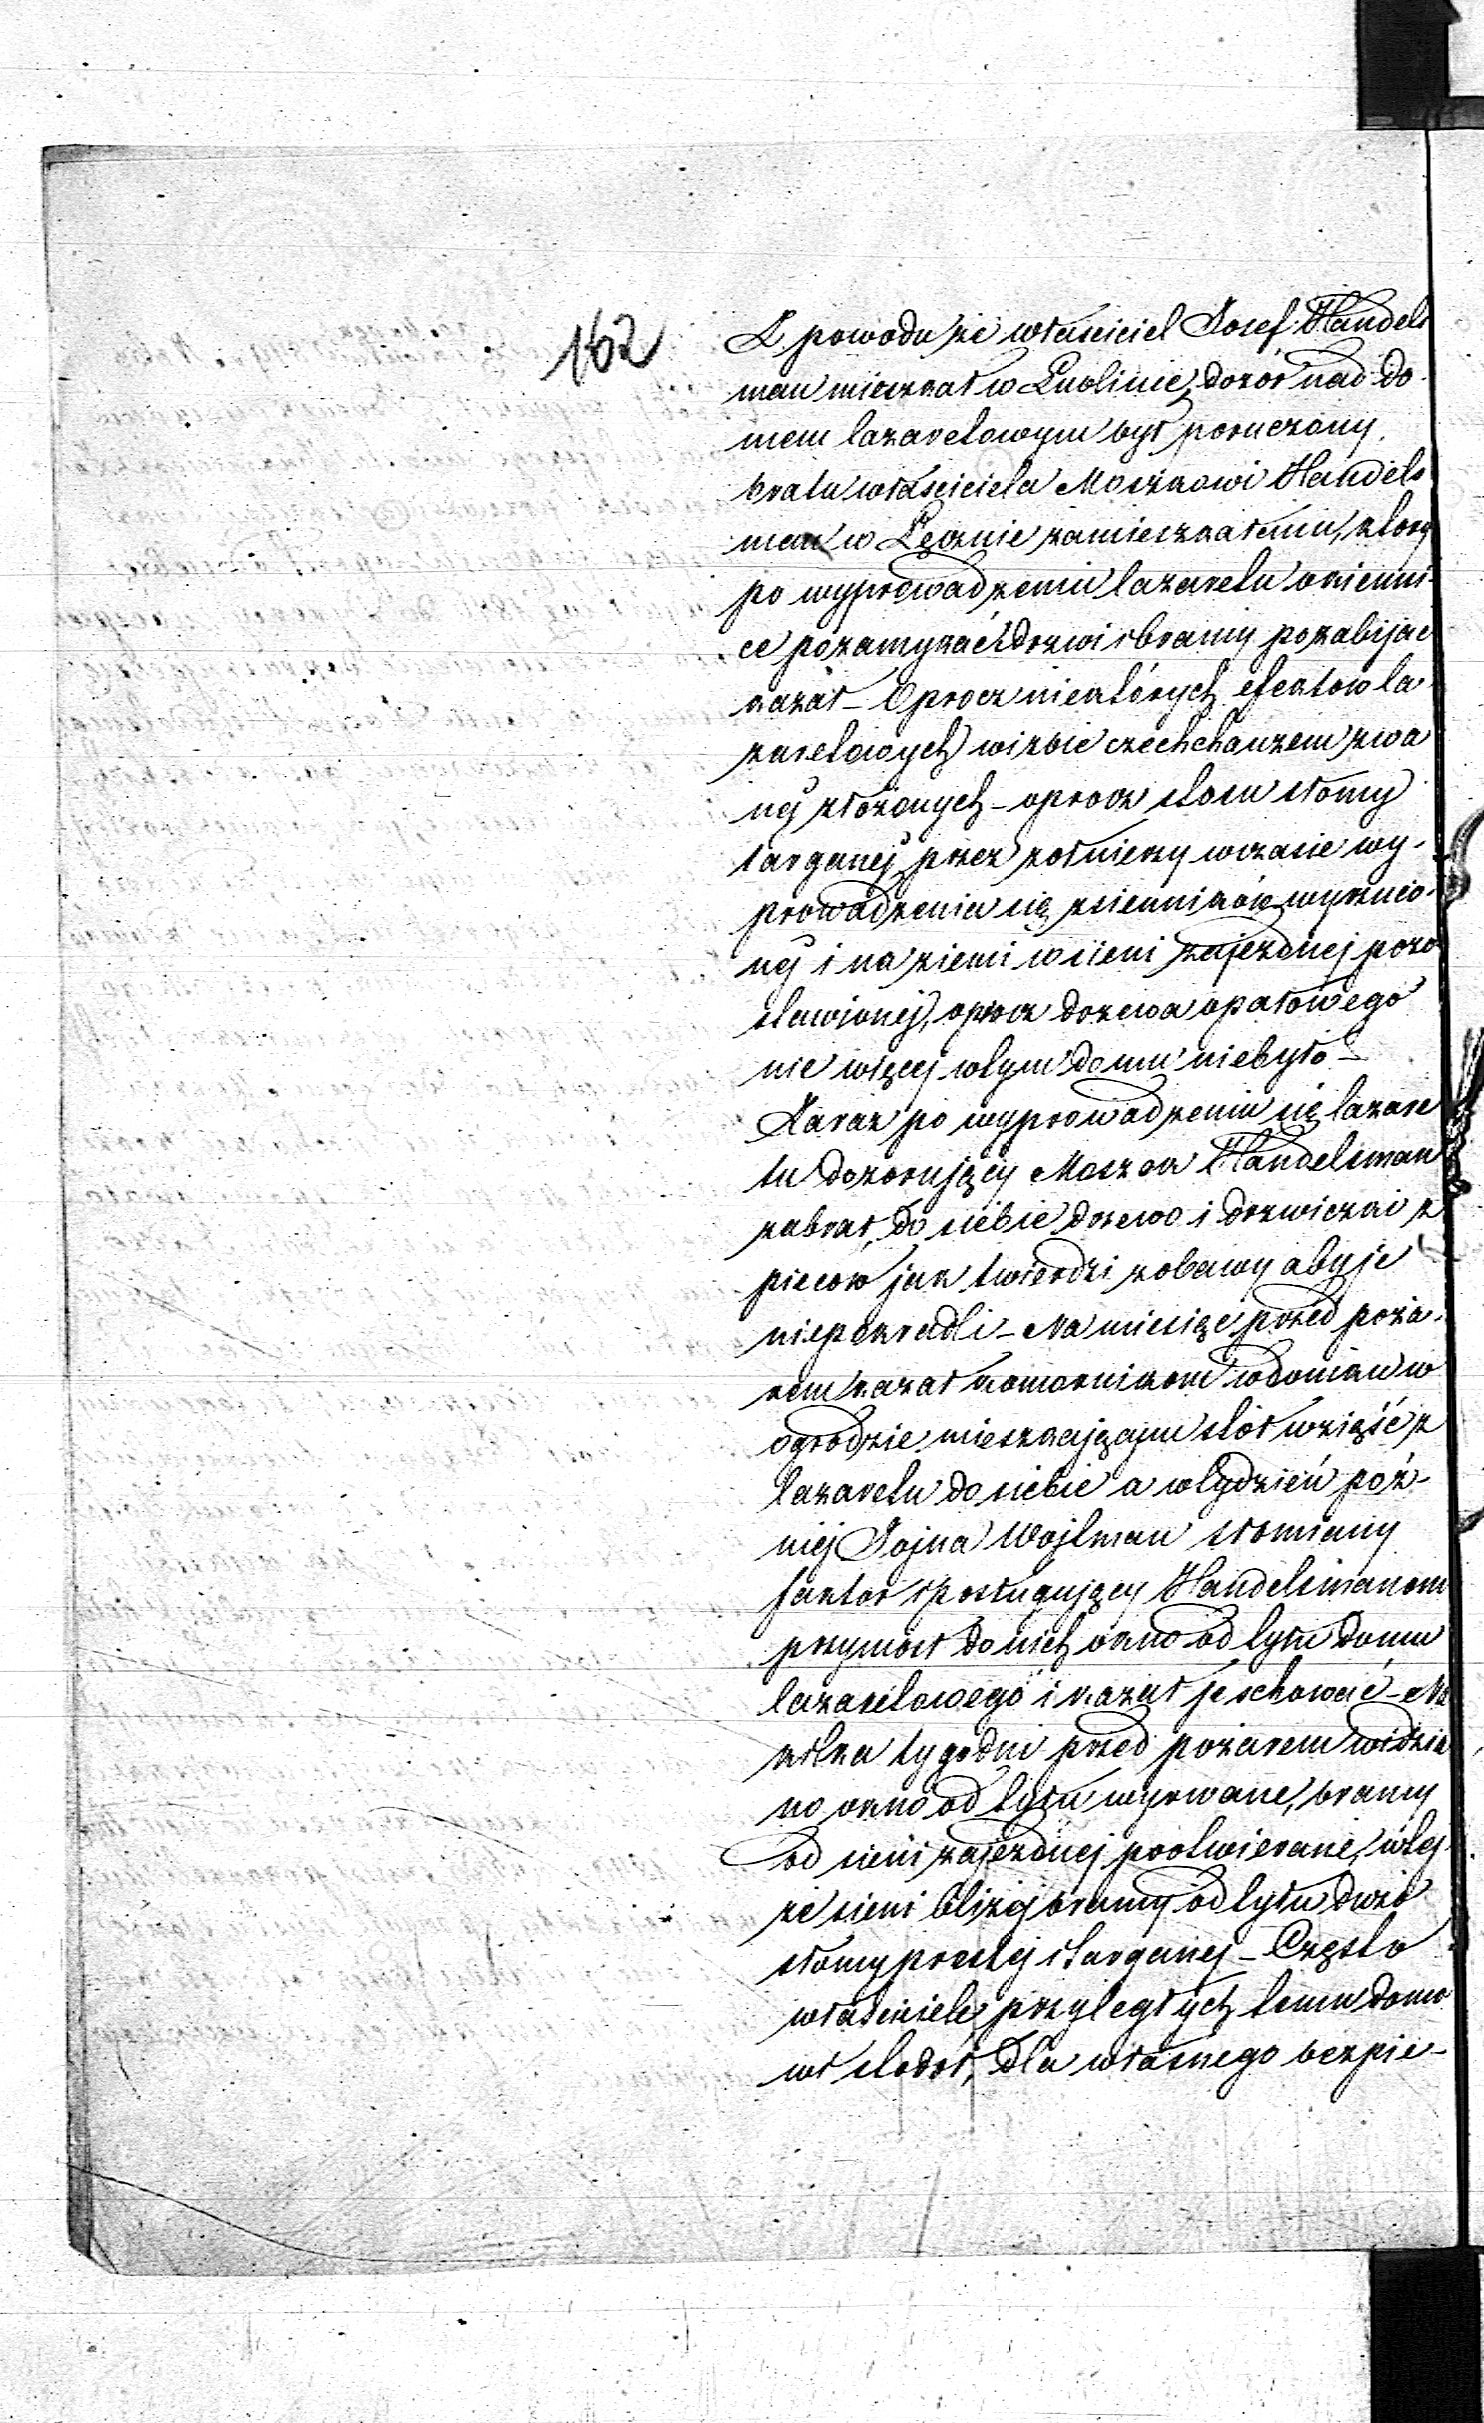 162
Z powodu że właściciel Josef Handels
man mieszkał w Lublinie, dozór nad do-
mem lazaretowym był poruczony
bratu właściciela Moszkowi Handels
man w Łęcznie zamieszkałemu, który
po wyprowadzeniu lazaretu okienni-
ce pozamykać drzwi i bramy pozabijać
kazał – Oprocz niektórych efektow la
zaretowych w izbie czechchauzem zwa
nej złożonych – oprocz stosu słomy
targanej przez żołnierzy w czasie wy-
prowadzenia się z sienników wyrzuco-
nej i na ziemi w sieni zajezdnej pozo
stawionej, oprocz drzewa opałowego
nic więcej w tym domu niebyło –
Zaraz po wyprowadzeniu się lazare
tu dozorujący Moszek Handelsman
zabrał do siebie drzewo i drzwiczki z
piecow jak twierdzi z obawy aby je
niepokradli – Na miesiąc przed poża-
rem kazał komornikom w domku w
ogrodzie mieszkającym stół wziąść z
lazaretu do siebie a w tydzień poź-
niej Jojna Wojtman słomiany
faktor i posługujący Handelsmanom
przyniosł do nich okno od tyłu domu
lazaretowego i kazał je schować – Na
kilka tygodni przed pożarem widzia
no okno od tyłu wyrwane, bramy
od sieni zajezdnej pootwierane, w tej
że sieni bliżej bramy od tyłu dużo
słomy prostej i targanej – Często
właściciele przyległych temu domo
wi stodoł, dla własnego bezpie-